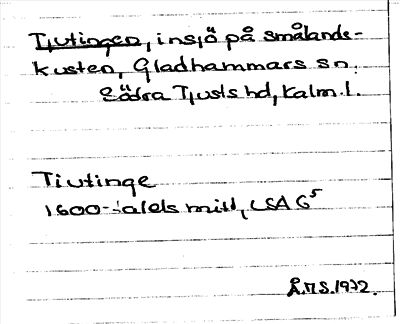 Tjutingen, insjö på smålands-
kusten, Gladhammars sn.
Södra Tjusts hd, Kalm.l.
Tiutinge
1600-talets mitt, LSA G5
Å.M.S.1972.